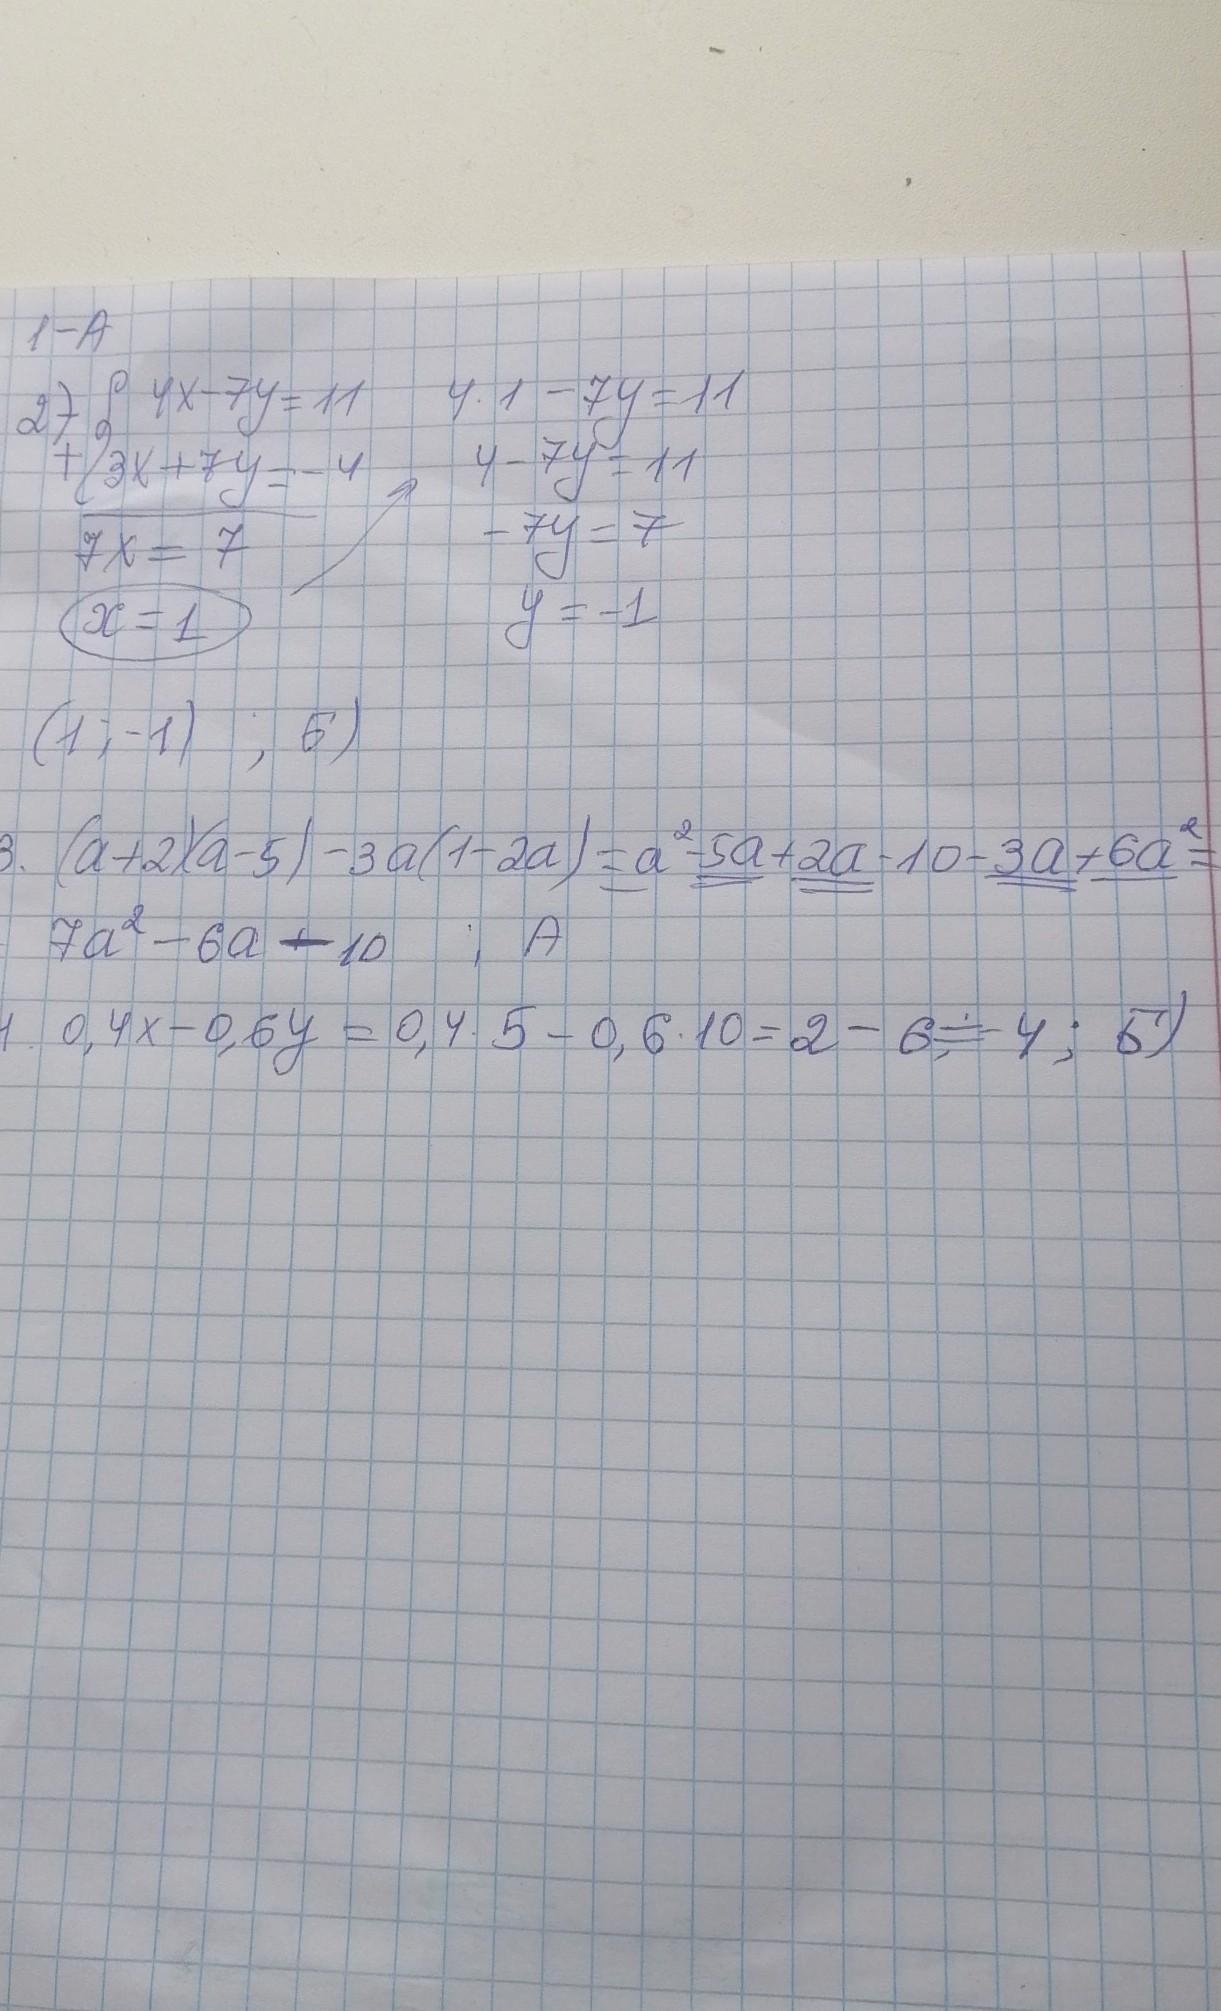 1-А
2) { 4x-7y=11
+ 3x+7y=-4
7x = 7
x=1
4·1 -7y=11
4-7y=11
-7y=7
y=-1
(1;-1) ; Б)
3. (a+2)(a-5)-3a(1-2a)=a²-5a+2a-10-3a+6a²=
7a²-6a-10 ; А
0,4x-0,6y=0,4·5-0,6·10=2-6=-4; Б)